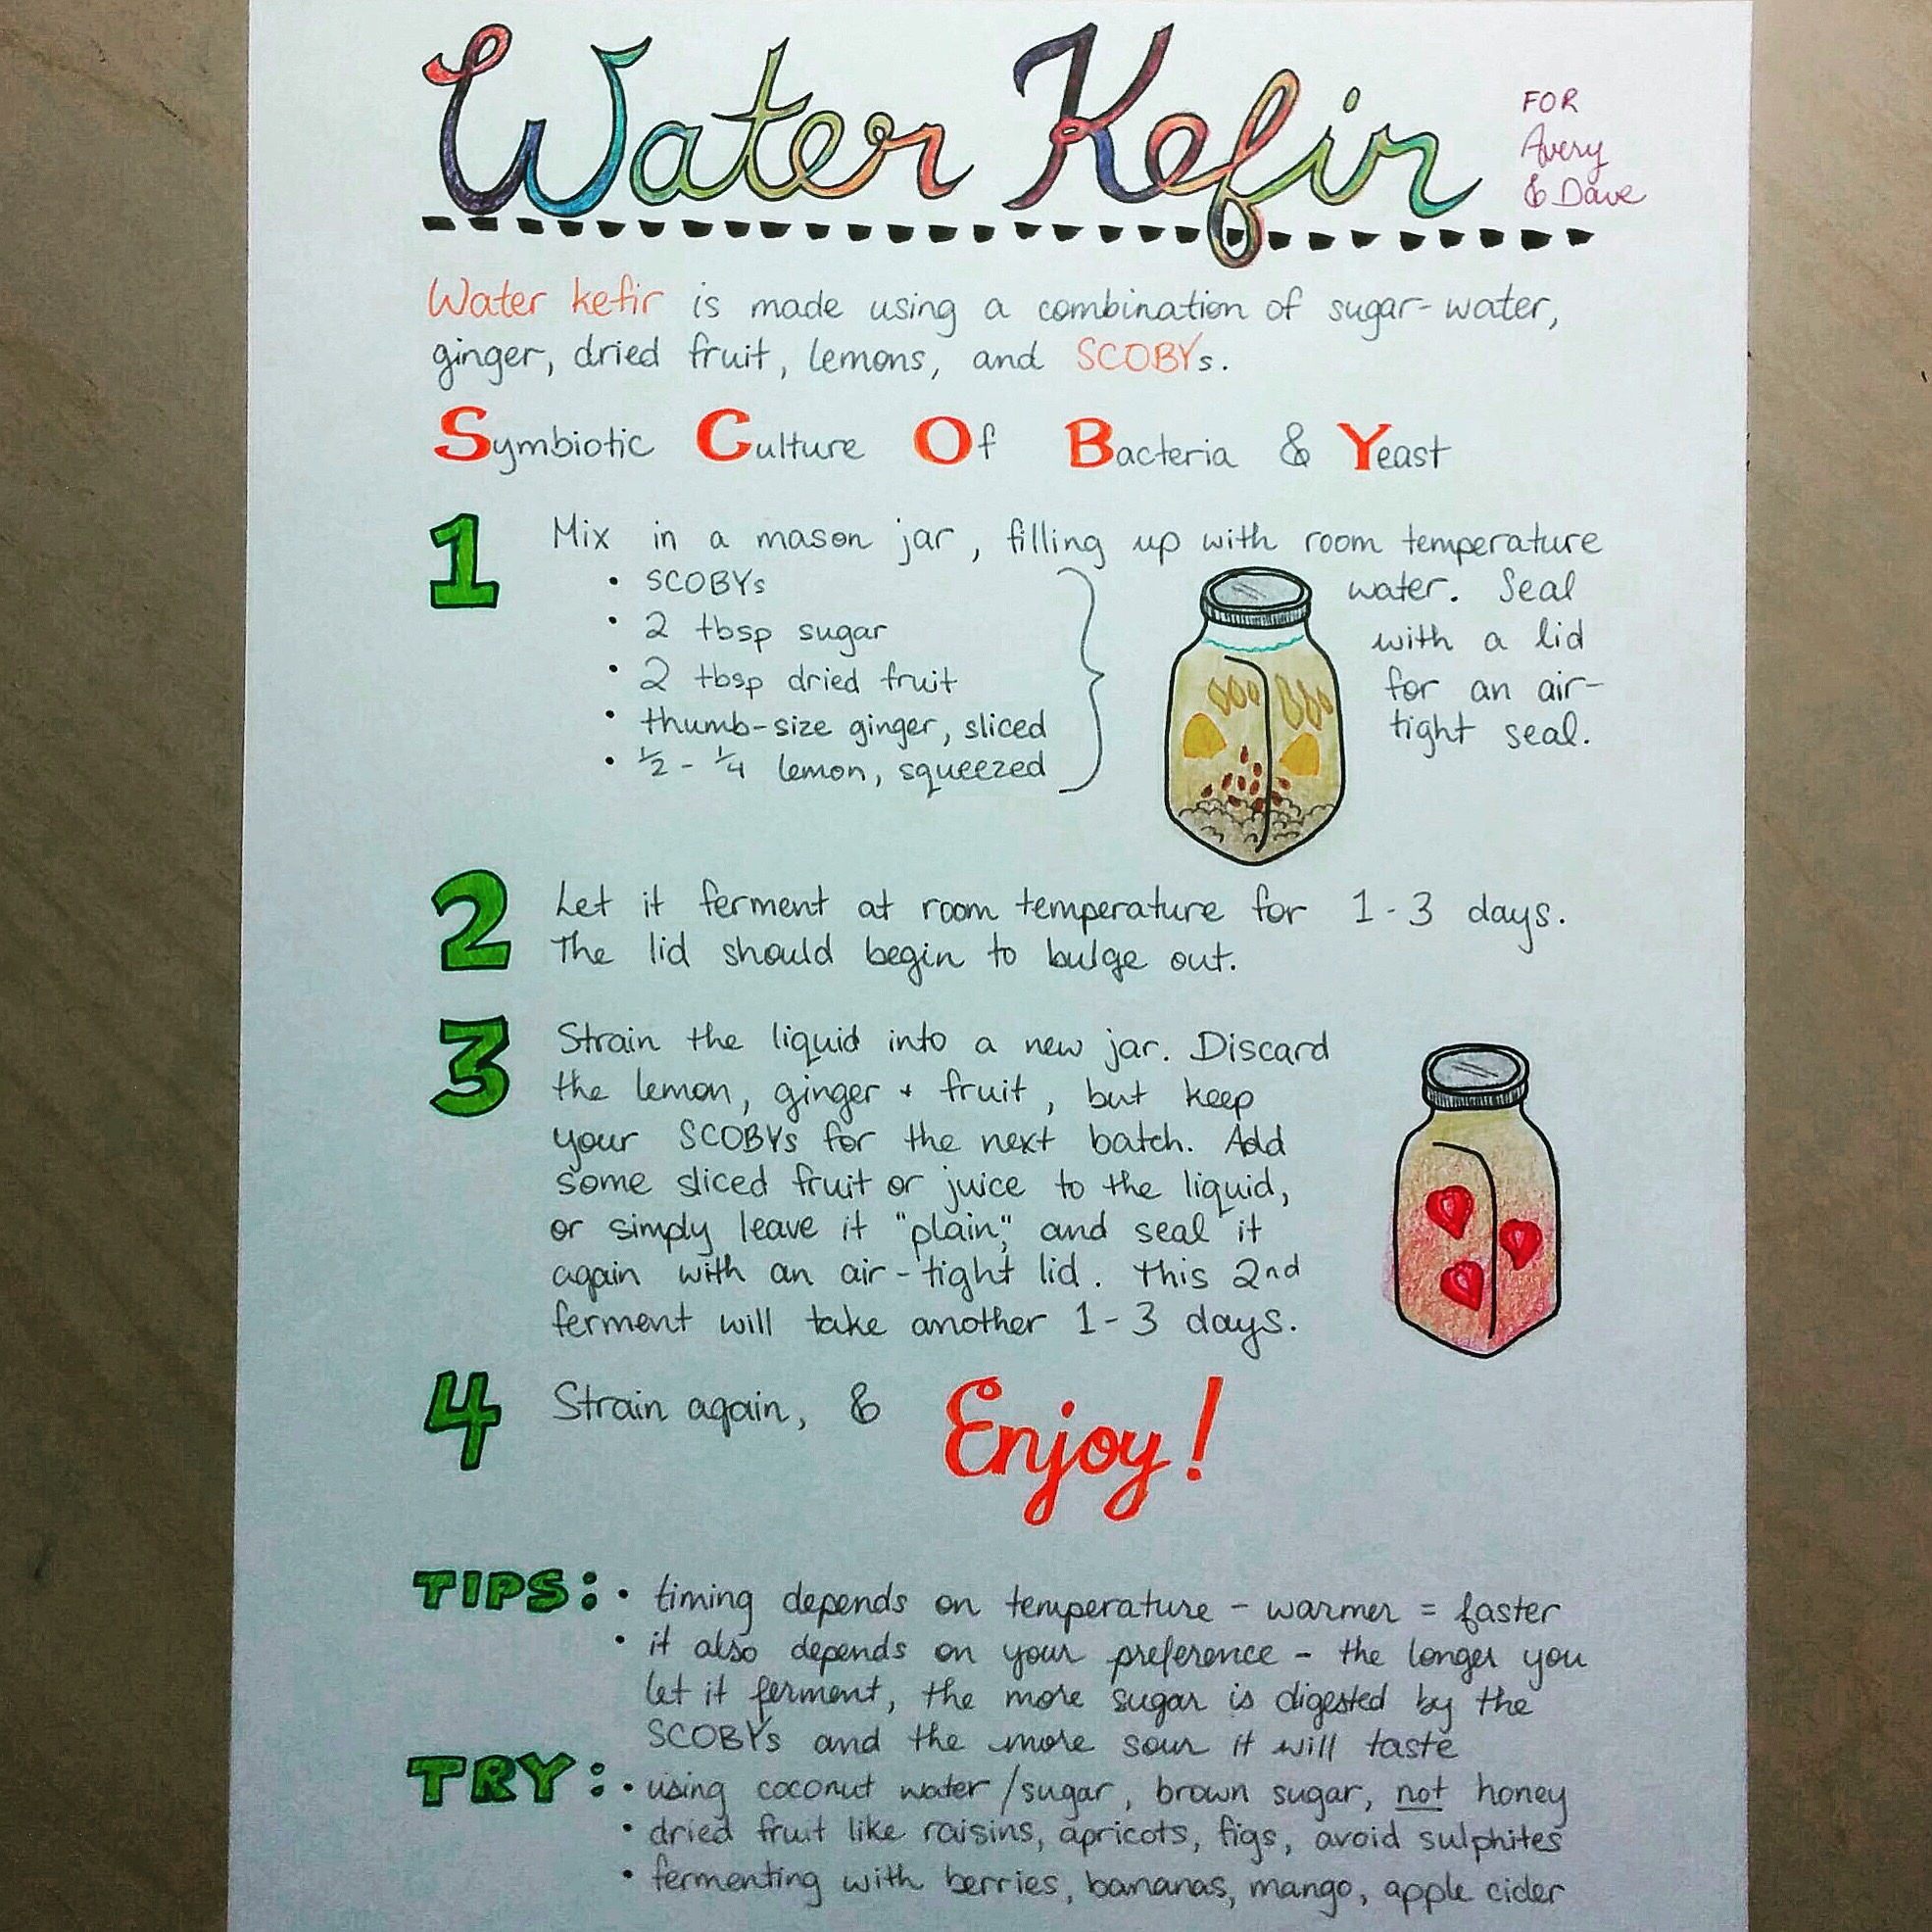 Water Kefir
FOR
Avery
& Dave
Water kefir is made using a combination of sugar-water,
ginger, dried fruit, lemons, and SCOBYs.
Symbiotic Culture Of Bacteria & Yeast
1 Mix in a mason jar, filling up with room temperature
water. Seal
with a lid
for an air-
tight seal.
• SCOBYs
• 2 tbsp sugar
• 2 tbsp dried fruit
• thumb-size ginger, sliced
• 1/2 - 1/4 lemon, squeezed
2 Let it ferment at room temperature for 1-3 days.
The lid should begin to bulge out.
3 Strain the liquid into a new jar. Discard
the lemon, ginger + fruit, but keep
your SCOBYs for the next batch. Add
some sliced fruit or juice to the liquid,
or simply leave it "plain," and seal it
again with an air-tight lid. This 2nd
ferment will take another 1-3 days.
4 Strain again, & Enjoy!
TIPS: • timing depends on temperature - warmer = faster
• it also depends on your preference - the longer you
let it ferment, the more sugar is digested by the
SCOBYs and the more sour it will taste
TRY: • using coconut water/sugar, brown sugar, not honey
• dried fruit like raisins, apricots, figs, avoid sulphites
• fermenting with berries, bananas, mango, apple cider